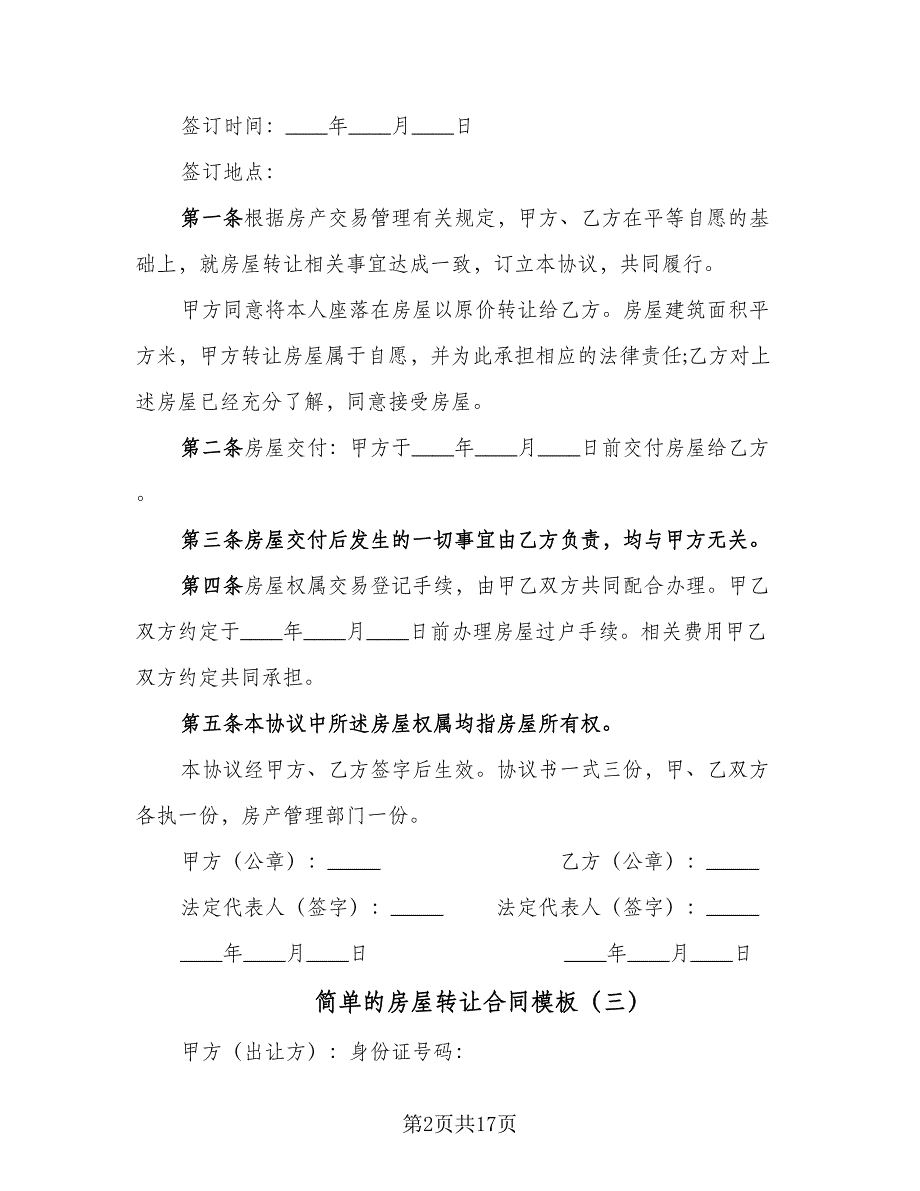 签订时间：____年____月____日
签订地点：
第一条根据房产交易管理有关规定，甲方、乙方在平等自愿的基
础上，就房屋转让相关事宜达成一致，订立本协议，共同履行。
甲方同意将本人座落在房屋以原价转让给乙方。房屋建筑面积平
方米，甲方转让房屋属于自愿，并为此承担相应的法律责任;乙方对上
述房屋已经充分了解，同意接受房屋。
第二条房屋交付：甲方于____年____月____日前交付房屋给乙方
。
第三条房屋交付后发生的一切事宜由乙方负责，均与甲方无关。
第四条房屋权属交易登记手续，由甲乙双方共同配合办理。甲乙
双方约定于____年____月____日前办理房屋过户手续。相关费用甲乙
双方约定共同承担。
第五条本协议中所述房屋权属均指房屋所有权。
本协议经甲方、乙方签字后生效。协议书一式三份，甲、乙双方
各执一份，房产管理部门一份。
甲方（公章）：_____ 乙方（公章）：_____
法定代表人（签字）：_____ 法定代表人（签字）：_____
____年____月____日 ____年____月____日
简单的房屋转让合同模板（三）
甲方（出让方）：身份证号码：
第2页共17页